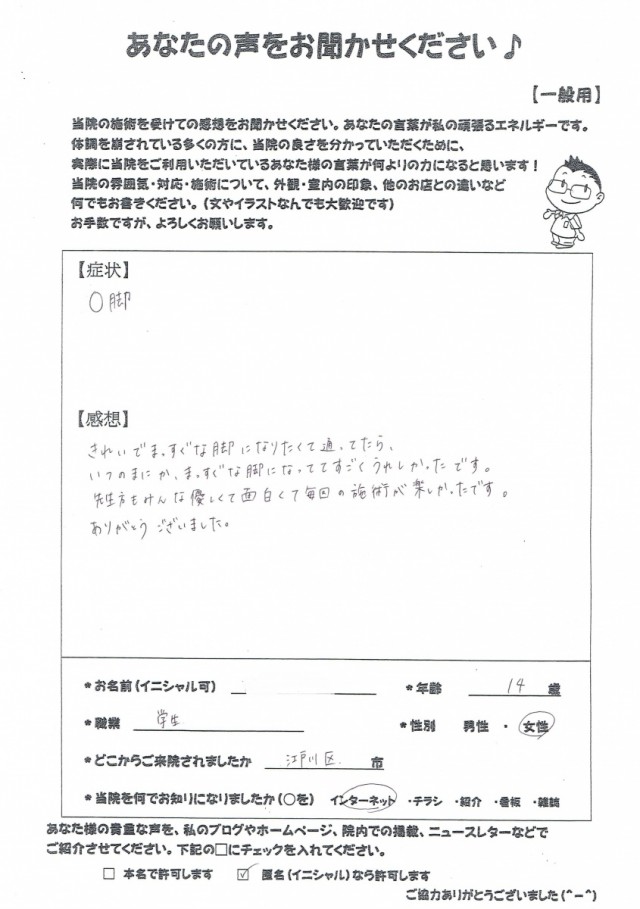 あなたの声をお聞かせください♪
【一般用】
当院の施術を受けての感想をお聞かせください。あなたの言葉が私の頑張るエネルギーです。
体調を崩されている多くの方に、当院の良さを分かっていただくために、
実際に当院をご利用いただいているあなた様の言葉が何よりの力になると思います！
当院の雰囲気・対応・施術について、外観・室内の印象、他のお店との違いなど
何でもお書きください。(文やイラストなんでも大歓迎です)
お手数ですが、よろしくお願いします。
【症状】
○脚
【感想】
きれいでまっすぐな脚になりたくて通ってたら、
いつのまにか、まっすぐな脚になっててすごくうれしかったです。
先生方もみんな優しくて面白くて毎回の施術が楽しかったです。
ありがとうございました。
*お名前(イニシャル可)
*年齢 14 歳
*職業 学生
*性別 男性 ・ 女性
*どこからご来院されましたか 江戸川区 市
*当院を何でお知りになりましたか(○を) インターネット ・チラシ ・紹介 ・看板 ・雑誌
あなた様の貴重な声を、私のブログやホームページ、院内での掲載、ニュースレターなどで
ご紹介させてください。下記の□にチェックを入れてください。
□ 本名で許可します ☑ 匿名(イニシャル)なら許可します
ご協力ありがとうございました(^-^)